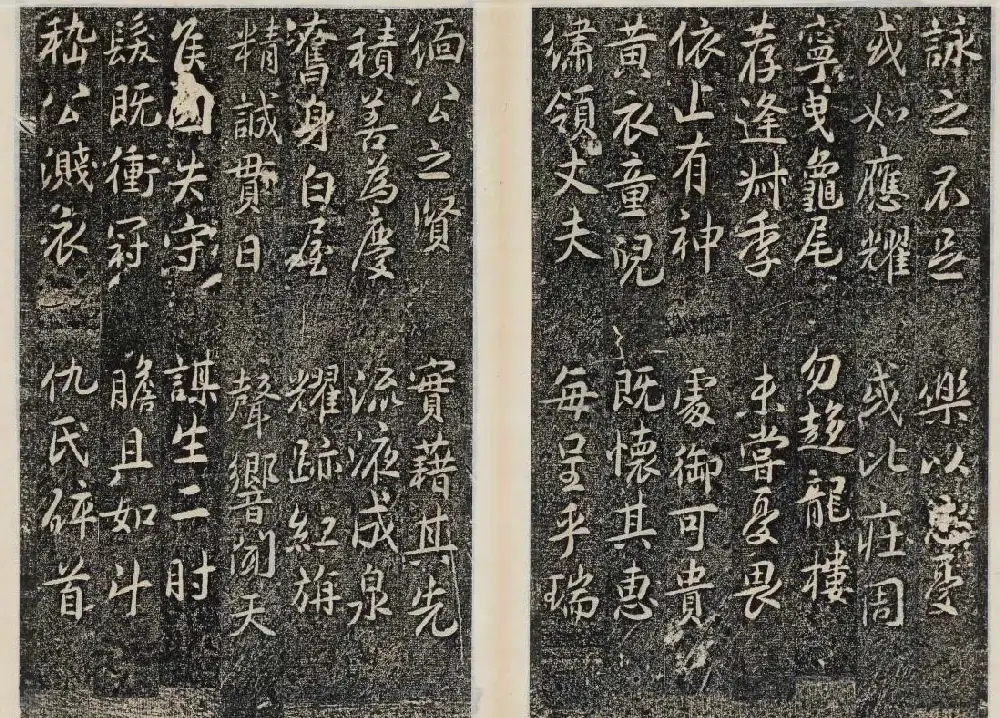 詠之不足 樂以憂
或如應耀 或比莊周
寧曳龜尾 勿趍龍樓
荐逢叔季 未嘗憂畏
依止有神 處御可貴
黃衣童兒 既懷其惠
繡領丈夫 每呈乎瑞
緬公之賢 實藉其先
積善為慶 流液成泉
奮身白屋 耀跡紅旃
精誠貫日 聲響聞天
失守 謀生二肘
髮既衝冠 膽且如斗
嵇公濺衣 仇氏碎首